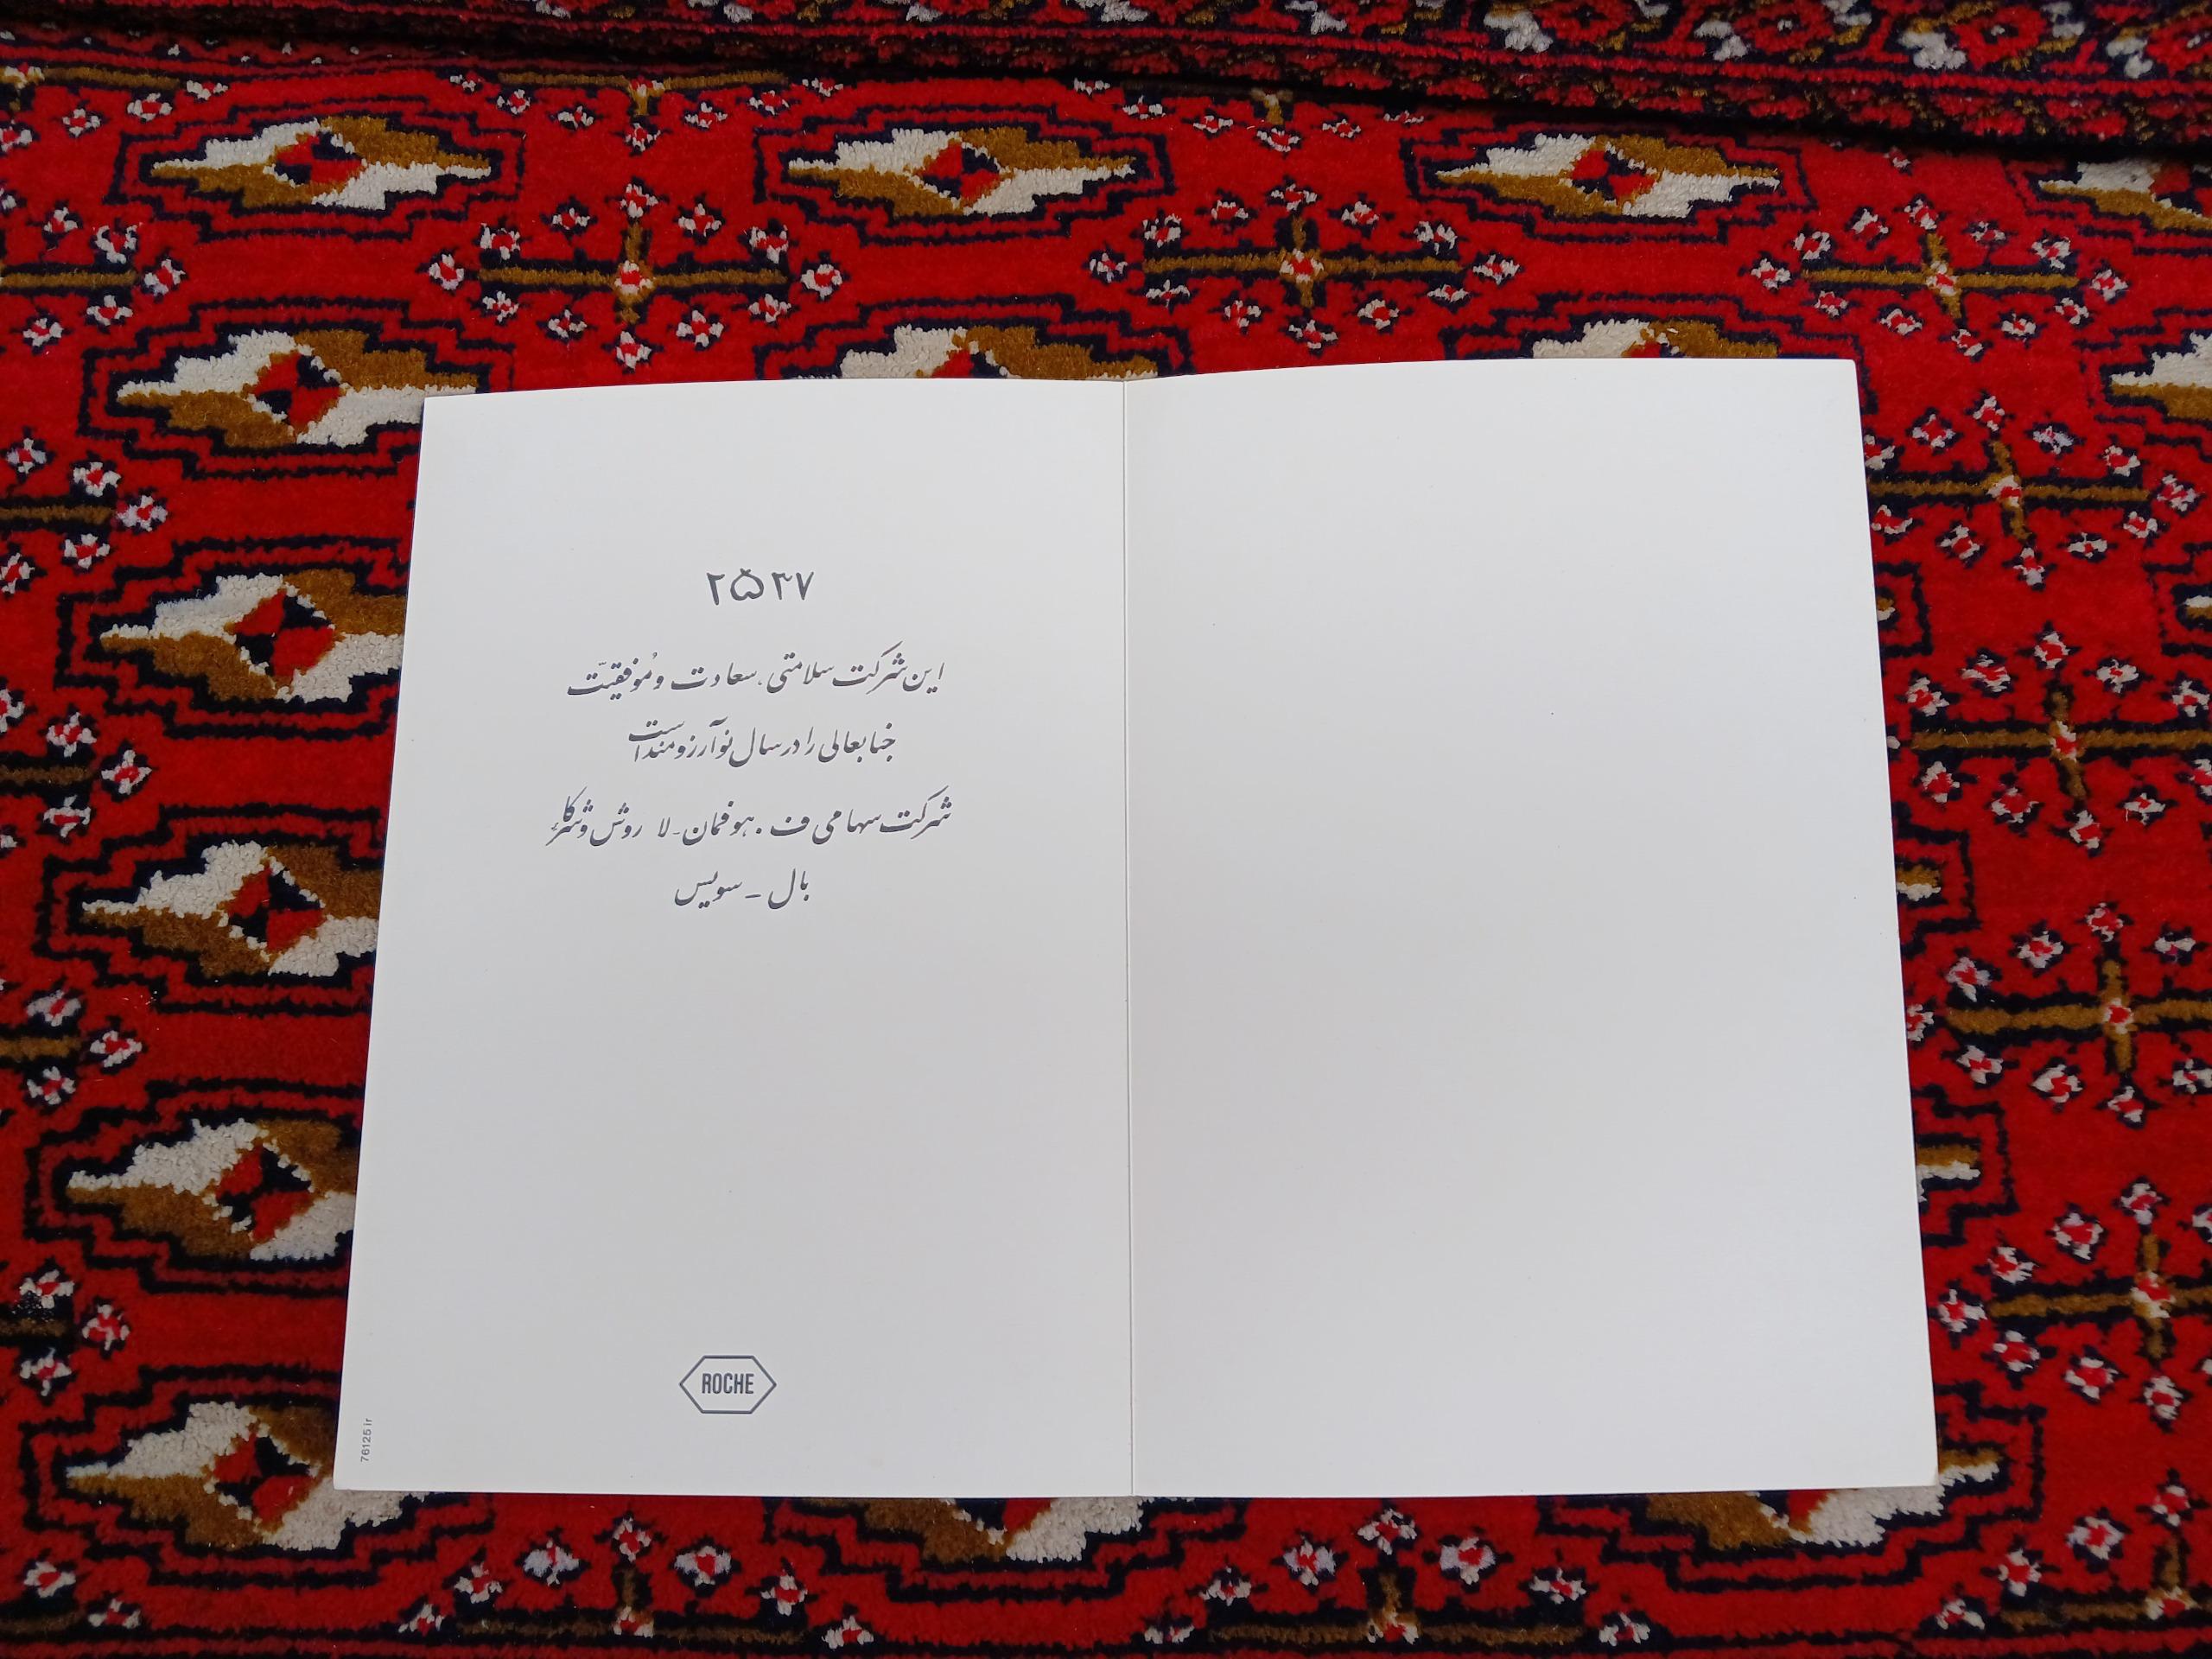 ۲۵۳۷
این شرکت سلامتی، سعادت و مُوفقیّت
جنابعالی را در سال نو آرزومند است
شرکت سهامی ف. هوفمان - لا روش و شرکاء
بال - سویس
ROCHE
76125 ir